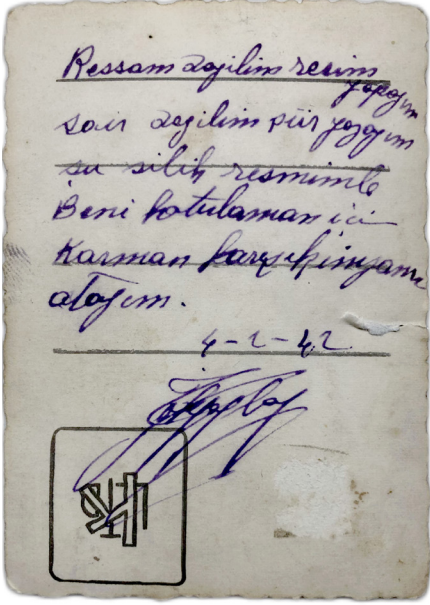 Ressam dağilim resim
yapayım
sair dağilim şiir yazayım
su silik resmimle
Beni hatulaman içi
Karman
atayım.
4-2-42